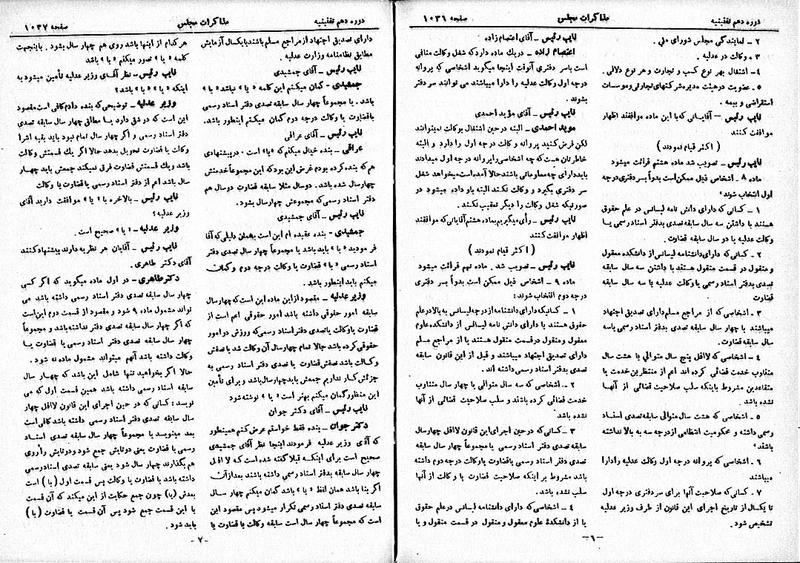 دوره دهم تقنینیه
مذاکرات مجلس
صفحه ۱۰۳۶
۲ ـ نمایندگی مجلس شورای ملی .
۳ ـ وکالت در عدلیه .
۴ ـ اشتغال بهر نوع کسب و تجارت و هر نوع دلالی .
۵ ـ عضویت در هیئت مدیره شرکتهای تجارتی و موسسات
استقراضی و بیمه .
نایب رئیس ـ آقایانی که با این ماده موافقند اظهار
موافقت کنند
( اکثر قیام نمودند )
نایب رئیس ـ تصویب شد ماده هشتم قرائت میشود
ماده ۸ ـ اشخاص ذیل ممکن است بدواً بسر دفتری درجه
اول انتخاب شوند
۱ ـ کسانی که دارای دانش نامه لیسانس در علم حقوق
هستند با داشتن سه سال سابقه تصدی بدفتر اسناد رسمی یا
وکالت عدلیه یا دو سال سابقه قضاوت .
۲ ـ کسانی که دارای دانشنامه لیسانس از دانشکده معقول
و منقول در قسمت منقول هستند با داشتن سه سال سابقه
تصدی بدفتر اسناد رسمی یا وکالت عدلیه یا سه سال سابقه
قضاوت
۳ ـ اشخاصی که از مراجع مسلم دارای تصدیق اجتهاد
میباشند با چهار سال سابقه تصدی بدفتر اسناد رسمی یا سه
سال سابقه قضاوت .
۴ ـ اشخاصی که لااقل پنج سال متوالی یا هشت سال
متناوب خدمت قضائی کرده اند اعم از منتظرین خدمت یا
متقاعدین مشروط باینکه سلب صلاحیت قضائی از آنها
نشده باشد
۵ ـ اشخاصی که هشت سال متوالی سابقه تصدی اسناد
رسمی داشته و محکومیت انتظامی از درجه سه به بالا نداشته
باشند .
۶ ـ اشخاصی که پروانه درجه اول وکالت عدلیه را دارا
میباشند
۷ ـ کسانی که صلاحیت آنها برای سر دفتری درجه اول
تا یکسال از تاریخ اجرای این قانون از طرف وزیر عدلیه
تشخیص شود .
نایب رئیس ـ آقای اعتصام زاده
اعتصام زاده ـ در یک ماده دارد که شغل وکالت منافی
است با سر دفتری آنوقت اینجا میگوید اشخاصی که پروانه
درجه اول وکالت عدلیه را دارا میباشند می توانند سر دفتر
بشوند .
نایب رئیس ـ آقای مؤید احمدی
موید احمدی ـ البته در حین اشتغال بوکالت نمیتوانند
لکن فرض کنید پروانه وکالت درجه اول را دارد و البته
خاطرتان هست که چه اشخاصی را پروانه درجه اول میدادند
باید دارای چه معلوماتی باشند حالا آمده است میخواهد شغل
سر دفتری بگیرد و وکالت نکند البته باو داده میشود در
صورتیکه شغل وکالت را دیگر تعقیب نکند .
نایب رئیس ـ رأی میگیریم بماده هشتم آقایانی که موافقند
اظهار موافقت کنند
( اکثر قیام نمودند )
نایب رئیس ـ تصویب شد . ماده نهم قرائت میشود
ماده ۹ ـ اشخاص ذیل ممکن است بدواً بسر دفتری
درجه دوم انتخاب شوند :
۱ ـ کسانیکه دارای دانشنامه از درجه لیسانس به بالا در علم
حقوق هستند یا دارای دانش نامه لیسانس از دانشکده علوم
معقول و منقول در قسمت منقول هستند یا از مراجع مسلم
دارای تصدیق اجتهاد میباشند و قبل از این قانون سابقه
تصدی دفتر اسناد رسمی داشته اند .
۲ ـ اشخاصی که سه سال متوالی یا چهار سال متناوب
خدمت قضائی کرده باشند و سلب صلاحیت قضائی از آنها
نشده باشد
۳ ـ کسانی که در حین اجرای این قانون لااقل چهار سال
سابقه تصدی دفتر اسناد رسمی یا مجموعاً چهار سال سابقه
تصدی دفتر اسناد رسمی یا قضاوت یا وکالت درجه دوم داشته
باشد مشروط بر اینکه صلاحیت قضاوت یا وکالت از آنها
سلب نشده باشد .
۴ ـ اشخاصی که دارای دانشنامه لیسانس در علم حقوق
یا از دانشکدهٔ علوم معقول و منقول در قسمت منقول و یا
ـ ۶ ـ
دوره دهم تقنینیه
مذاکرات مجلس
صفحه ۱۰۳۷
دارای تصدیق اجتهاد از مراجع مسلم باشند با یکسال آزمایش
مطابق نظامنامه وزارت عدلیه .
نایب رئیس ـ آقای جمشیدی
جمشیدی ـ گمان میکنم این کلمه « یا » نباشد « با »
باشد . یا مجموعاً چهار سال سابقه تصدی دفتر رسمی
با قضاوت یا وکالت درجه دوم گمان میکنم اینطور باشد.
نایب رئیس ـ آقای عراقی
عراقی ـ بنده خیال میکنم که « یا » است . در پیشنهادی
هم که بنده کرده بودم غرض این بود که این مجموعاً خدمتش
چهار سال شده باشد . دو سال مثلا سابقه قضاوت دو سال هم
دفتر اسناد رسمی که مجموعش چهار سال بشود .
نایب رئیس ـ آقای جمشیدی
جمشیدی ـ بنده عقیده ام این است بهمان دلیلی که آقا
فرمودید « با » باید باشد یا مجموعاً چهار سال سابقه تصدی دفتر
اسناد رسمی « با » قضاوت یا وکالت درجه دوم و گمان
میکنم باید اینطور باشد .
وزیر عدلیه ـ مقصود از این ماده این است که چهار سال
سابقه امور حقوقی داشته باشد امور حقوقی اعم از
قضاوت یا وکالت یا تصدی دفتر اسناد رسمی که ورزش در امور
حقوقی کرده باشد حالا تمام چهار سال آن وکالت شد یا نصفش
وکالت باشد نصفش قضاوت یا تصدی دفتر اسناد رسمی به
جزئش کار نداریم جمعش باید چهار سال باشد و برای تأمین
این منظور گمان میکنم بهتر است « با » نوشته شود
نایب رئیس ـ آقای دکتر جوان
دکتر جوان ـ بنده فقط خواستم عرض کنم همینطور
که آقای وزیر عدلیه فرمودند اینجا نظر آقای جمشیدی
صحیح است برای اینکه قبلا گفته شده است که لااقل
چهار سال سابقه دفتر اسناد رسمی داشته باشند بعد از آن
اگر بنا باشد همان لفظ « یا » باشد گمان میکنم چهار سال
سابقه تصدی دفتر اسناد رسمی تکرار میشود پس مقصود این
است که مجموعاً چهار سال است سابقه وکالت یا قضاوت یا
هر کدام از اینها باشد روی هم چهار سال بشود . باینجهت
کلمه « با » تصور میکنم « با » باشد
نایب رئیس ـ نظر آقای وزیر عدلیه تأمین میشود به
اینکه « با » باشد ؟
وزیر عدلیه ـ توضیحی که بنده دادم کافی است مقصود
این است که در شق دارد یا مطلق چهار سال سابقه تصدی
دفتر اسناد رسمی و اگر چهار سال تمام نبود باید بقیه اش را
وکالت یا قضاوت تحویل بدهد حالا اگر یک قسمتش وکالت
باشد و یک قسمتش قضاوت فرق نمیکند جمعش باید چهار
سال باشد اعم از دفتر اسناد رسمی یا قضاوت یا وکالت
نایب رئیس ـ بالاخره با « با » موافقت دارید آقای
وزیر عدلیه؟
وزیر عدلیه ـ « با » صحیح است .
نایب رئیس ـ آقایان هر نظریه دارند پیشنهاد کنند
آقای دکتر طاهری .
دکتر طاهری ـ در اول ماده میگوید که اگر کسی
چهار سال سابقه تصدی دفتر اسناد رسمی داشته باشد می
تواند مشمول ماده ۹ شود و مقصود از قسمت دوم این است
که اگر چهار سال تصدی دفتر نداشته باشد و مجموعاً
چهار سال سابقه تصدی دفتر اسناد رسمی یا قضاوت یا
وکالت داشته باشد آنهم میتواند مشمول ماده نه شود .
حالا اگر بخواهید تنها شامل این باشد که چهار سال
سابقه اسناد رسمی داشته باشد همین قسمت اول که می
نویسد : کسانی که در حین اجرای این قانون لااقل چهار
سال سابقه تصدی دفتر اسناد رسمی داشته باشد کافی است
بعد مینویسد یا مجموعاً چهار سال سابقه تصدی اسناد
رسمی یا قضاوت یعنی دو تایش جمع شود دو تایش را روی
هم بگذارند چهار سال شود یعنی سابقه تصدی اسناد رسمی
داشته باشد یا قضاوت یا وکالت پس قسمت اول ( یا ) است
بعدش ( با ) چون جمع حکایت از این میکند که آن قسمت
با این قسمت جمع شود پس آن قسمت یا قضاوت ( با )
باید شود .
ـ ۷ ـ